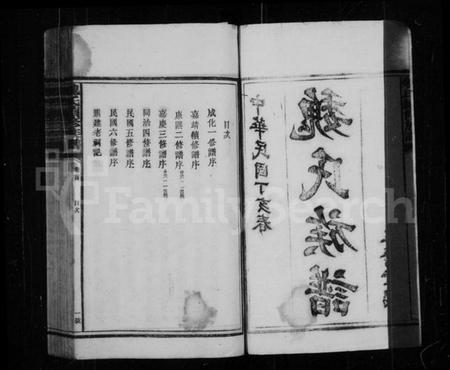 魏氏族譜
中華民國丁亥春
目次
成化一修譜序
嘉靖續修譜序
康熙二修譜序
嘉慶三修譜序
同治四修譜序
民國五修譜序
民國六修譜序
重建老祠記
卷首
目次
一號
FamilySearch